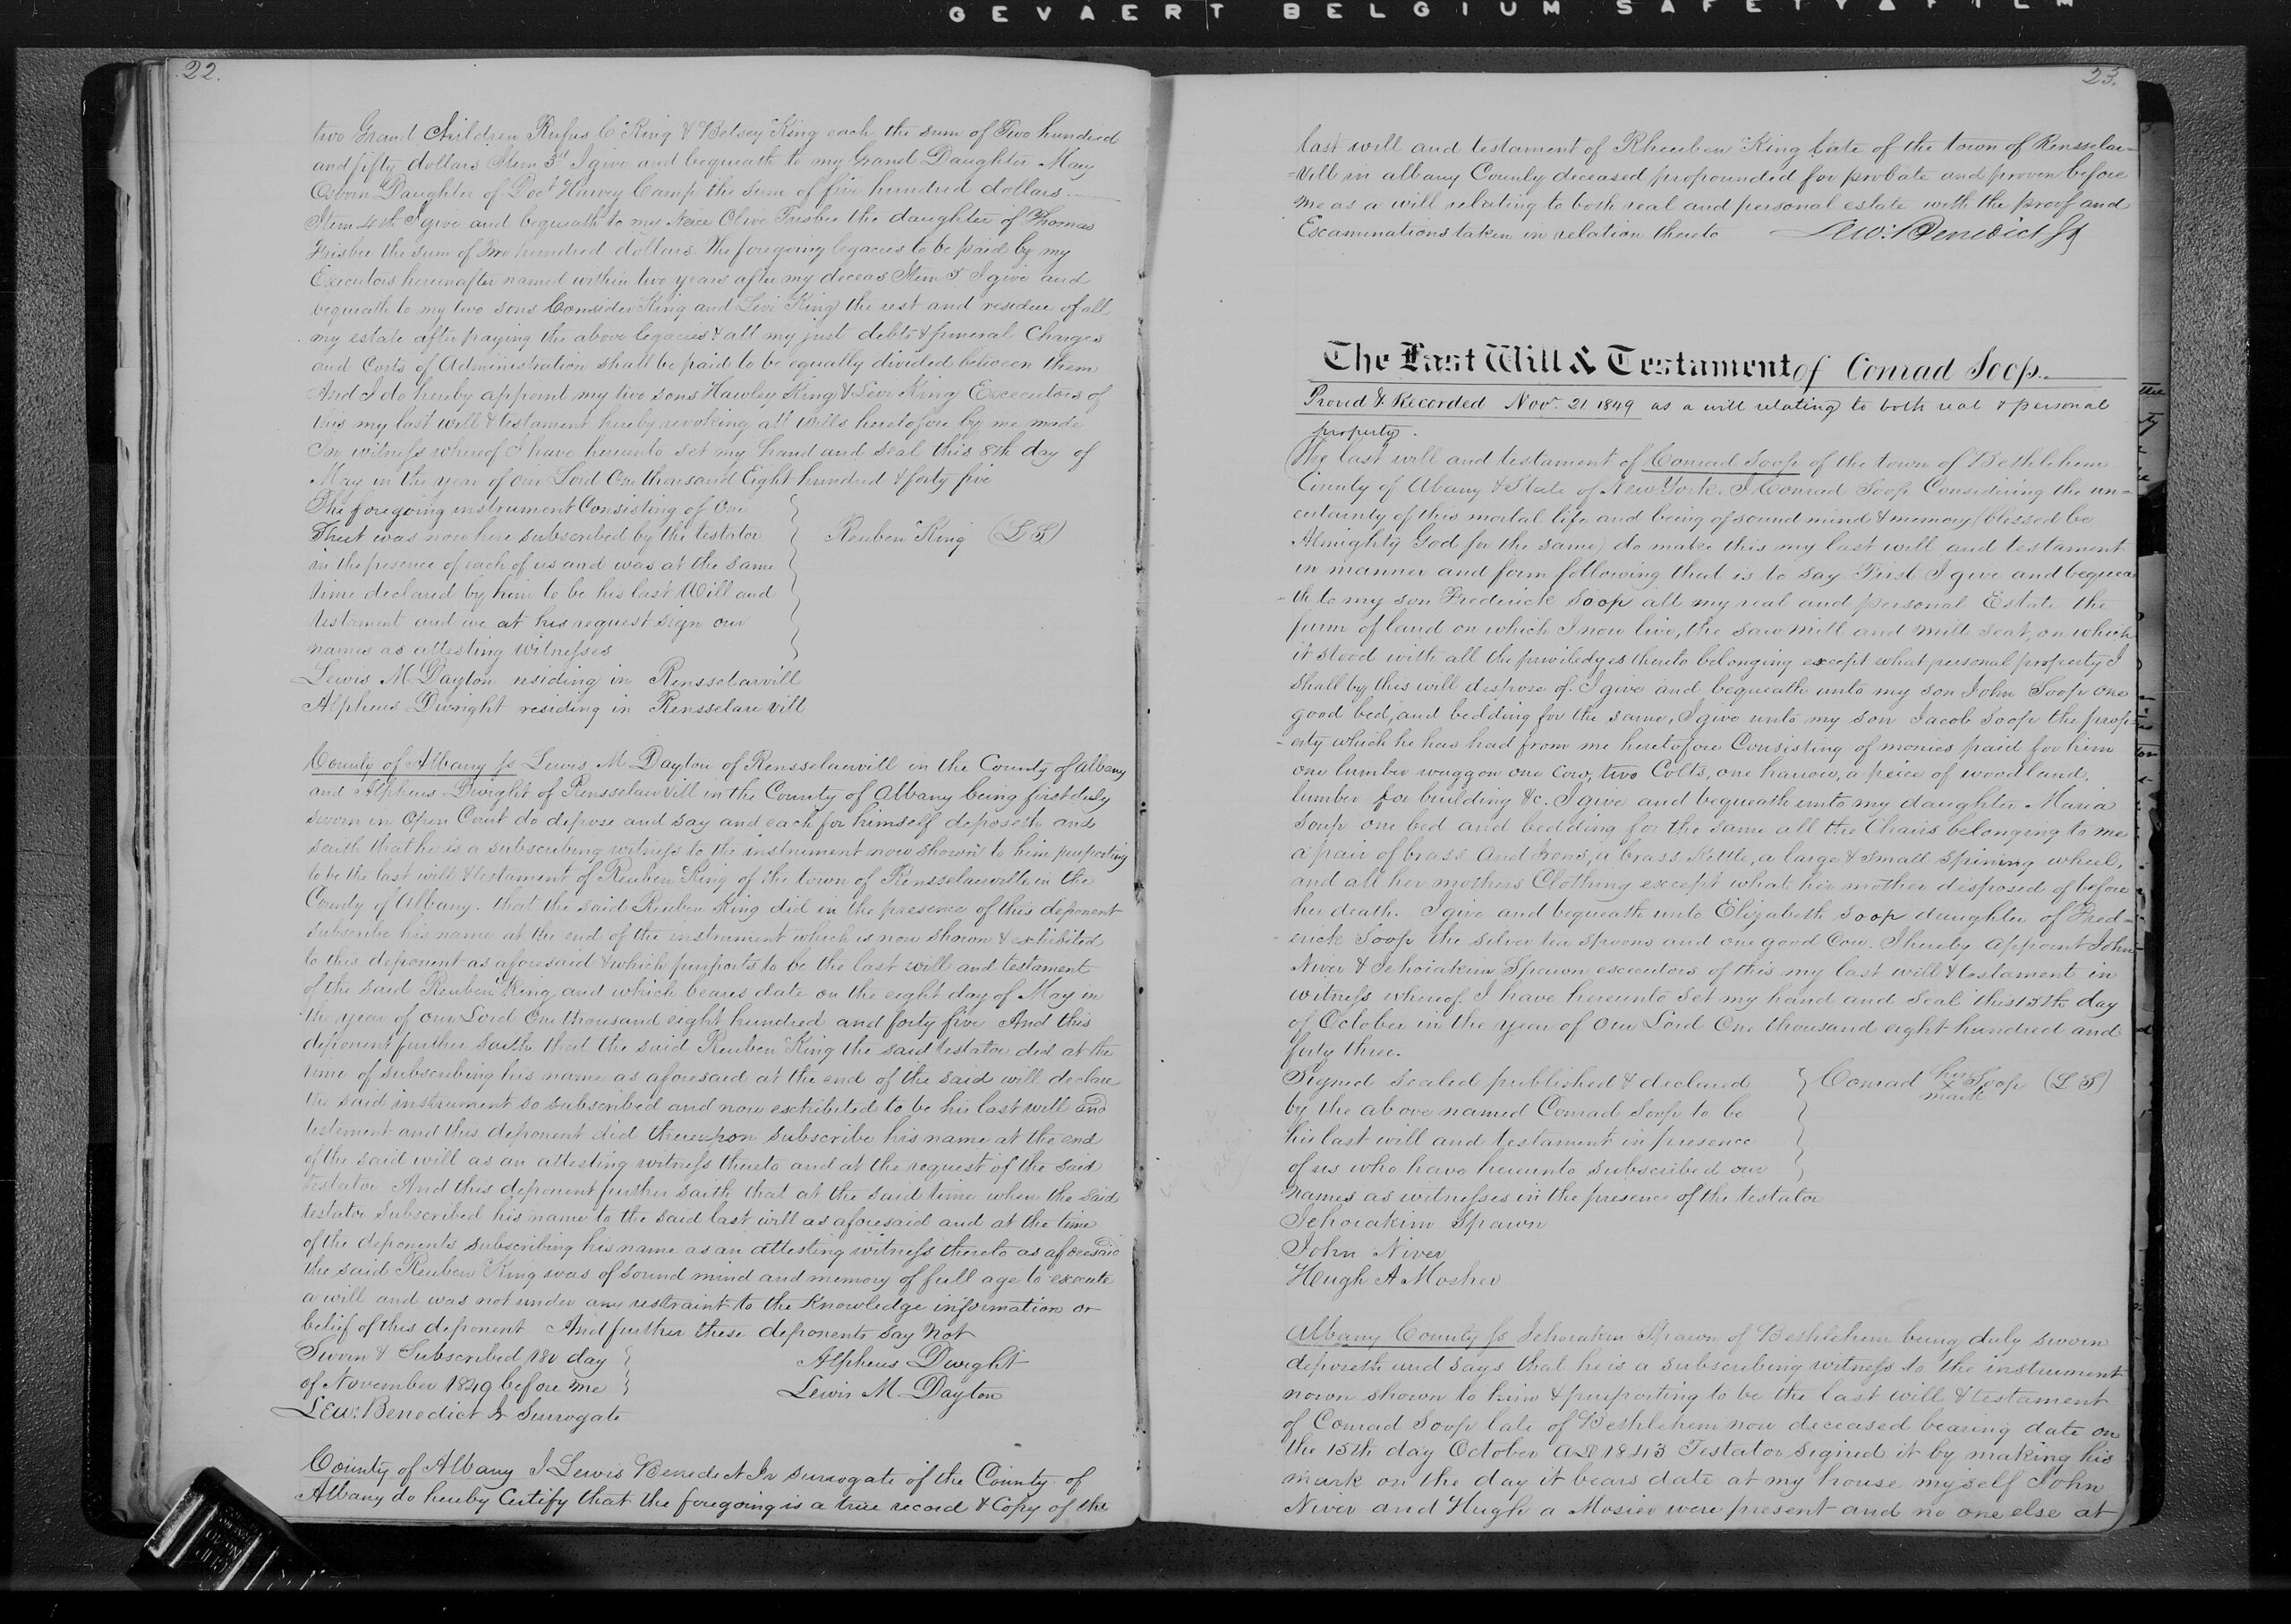 GEVAERT BELGIUM SAFETY FILM
22.
two Grand Children Rufus C King & Betsey King each the sum of Two hundred
and fifty dollars Item 3d I give and bequeath to my Grand Daughter Mary
Osborn Daughter of Doct Harvey Camp the sum of five hundred dollars
Item 4th I give and bequeath to my Neice Olive Frisbee the daughter of Thomas
Frisbee the sum of Two hundred dollars. The foregoing legacies to be paid by my
Executors hereinafter named within two years after my deceas Item 5 I give and
bequeath to my two sons Consider King and Levi King the rest and residue of all
my estate after paying the above legacies & all my just debts & funeral Charges
and Costs of Administration shall be paid to be equally divided between them
And I do hereby appoint my two sons Hawley King & Levi King Excecutors of
this my last will & testament hereby revoking all wills heretofore by me made
In witness whereof I have hereunto set my hand and seal this 8th day of
May in the year of our Lord One thousand Eight hundred & forty five
The foregoing instrument Consisting of One
Sheet was now here subscribed by the testator Reuben King (L S)
in the presence of each of us and was at the same
time declared by him to be his last Will and
testament and we at his request sign our
names as attesting witnesses
Lewis M Dayton residing in Rensselarvill
Alpheus Dwight residing in Rensselare vill
County of Albany ss Lewis M Dayton of Rensselaervill in the County of Albany
and Alpheus Dwight of Rensselaer Vill in the County of Albany being first duly
sworn in Open Court do depose and say and each for himself deposeth and
saith that he is a subscribing witness to the instrument now shown to him purporting
to be the last will & testament of Reuben King of the town of Rensselaerville in the
County of Albany. that the said Reuben King did in the presence of this deponent
subscribe his name at the end of the instrument which is now shown & exhibited
to this deponent as aforesaid & which purports to be the last will and testament
of the said Reuben King and which bears date on the eight day of May in
the year of our Lord One thousand eight hundred and forty five And this
deponent further saith that the said Reuben King the said testator did at the
time of subscribing his name as aforesaid at the end of the said will declare
the said instrument so subscribed and now exhibited to be his last will and
testament and this deponent did thereupon subscribe his name at the end
of the said will as an attesting witness thereto and at the request of the said
testator And this deponent further saith that at the said time when the said
testator subscribed his name to the said last will as aforesaid and at the time
of the deponents subscribing his name as an attesting witness thereto as aforesaid
the said Reuben King was of sound mind and memory of full age to execute
a will and was not under any restraint to the Knowledge information or
belief of this deponent And further these deponents say not
Sworn & Subscribed day Alpheus Dwight
of November 1849 before me Lewis M Dayton
Lew: Benedict Jr Surrogate
County of Albany I Lewis Benedict Jr surrogate of the County of
Albany do hereby Certify that the foregoing is a true record & Copy of the
23.
last will and testament of Rheuben King late of the town of Rensselaer=
=vill in albany County deceased propounded for probate and proven before
me as a will relating to both real and personal estate with the proof and
Excaminations taken in relation thereto Lew: Benedict Jr
The Last Will & Testament of Conrad Soop.
Proved & Recorded Nov. 21 1849 as a will relating to both real & personal
property.
The last will and testament of Conrad Soop of the town of Bethlehem
County of Albany & State of New York. I Conrad Soop Considering the un=
certainty of this mortal life and being of sound mind & memory (blessed be
Almighty God for the same) do make this my last will and testament
in manner and form following that is to say First I give and bequea
-th to my son Frederick Soop all my real and personal Estate the
farm of land on which I now live, the saw mill and mill seat, on which
it stood with all the priviledges thereto belonging except what personal property I
shall by this will dispose of. I give and bequeath unto my son John Soop one
good bed, and bedding for the same, I give unto my son Jacob Soop the prop=
-erty which he has had from me heretofore Consisting of monies paid for him
one lumber waggon one Cow, two Colts, one harrow, a peice of woodland.
lumber for building &c. I give and bequeath unto my daughter Maria
Soop one bed and bedding for the same all the Chairs belonging to me
a pair of brass And Irons, a brass Kettle, a large & small spining wheel,
and all her mothers Clothing except what her mother disposed of before
her death. I give and bequeath unto Elizabeth Soop daughter of Fred=
-erick Soop the silver tea spoons and one good Cow. I hereby appoint John
Niver & Jehoiakim Spawn excecutors of this my last will & testament in
witness whereof I have hereunto set my hand and seal this 15th day
of October in the year of Our Lord One thousand eight hundred and
forty three.
Signed sealed published & declared Conrad his x mark Soop (L S)
by the above named Conrad Soop to be
his last will and testament in presence
of us who have hereunto subscribed our
names as witnesses in the presence of the testator
Jehoiakim Spawn
John Niver
Hugh A Mosher
Albany County ss Jehoiakim Spawn of Bethlehem being duly sworn
deposeth and says that he is a subscribing witness to the instrument
nown shown to him & purporting to be the last will & testament
of Conrad Soop late of Bethlehem now deceased bearing date on
the 15th day October AD 1843 Testator signed it by making his
mark on the day it bears date at my house myself John
Niver and Hugh a Mosier were present and no one else at